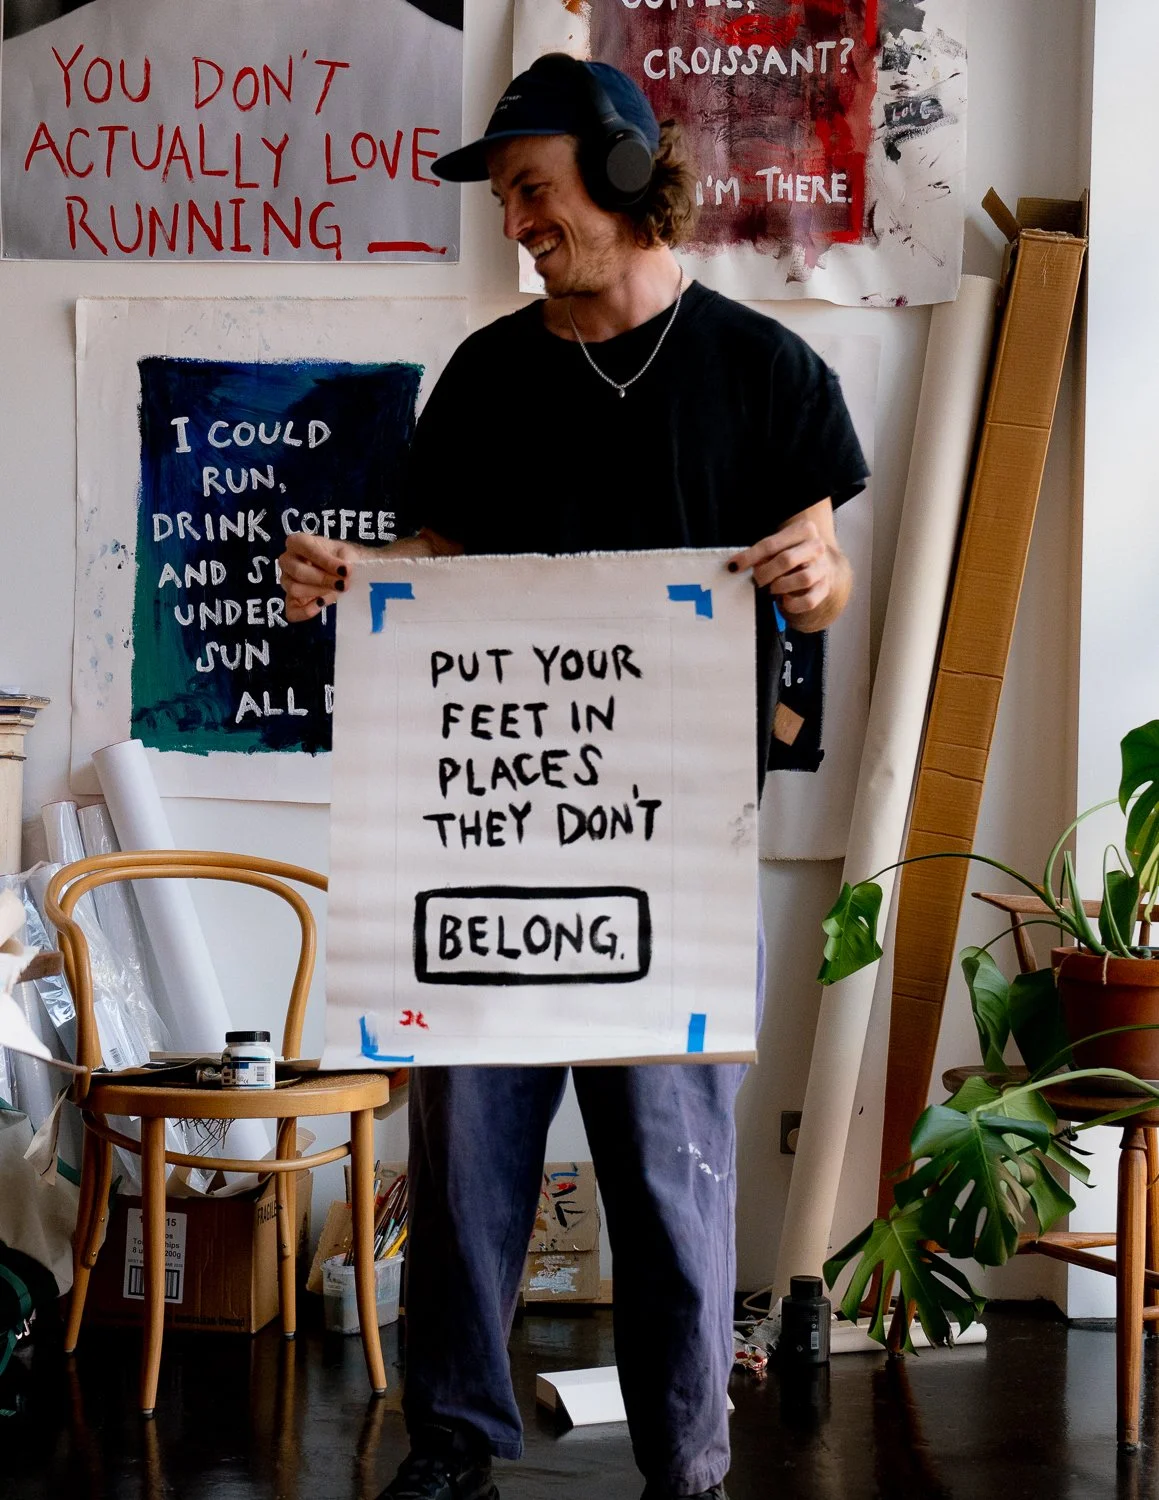 YOU DON'T
ACTUALLY LOVE
RUNNING
CROISSANT?
I'M THERE.
LOVE
I COULD
RUN,
DRINK COFFEE
AND
UNDER
SUN
ALL
PUT YOUR
FEET IN
PLACES
THEY DON'T
BELONG.
FRAGILE